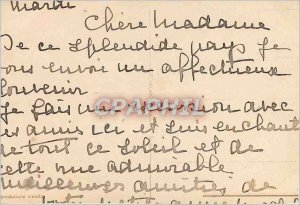 Mardi
Chère Madame
De ce splendide pays je
vous envoi un affectueux
souvenir
Je fais une excursion avec
des amis ici et suis enchanté
de tout ce soleil et de
cette vue admirable
meilleures amitiés de